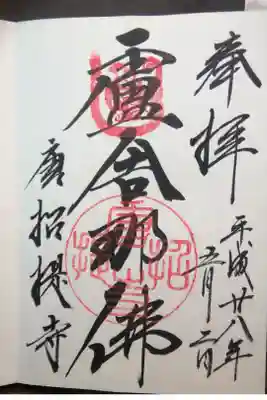 奉拝
平成廿八年
五月二日
盧舎那佛
唐招提寺